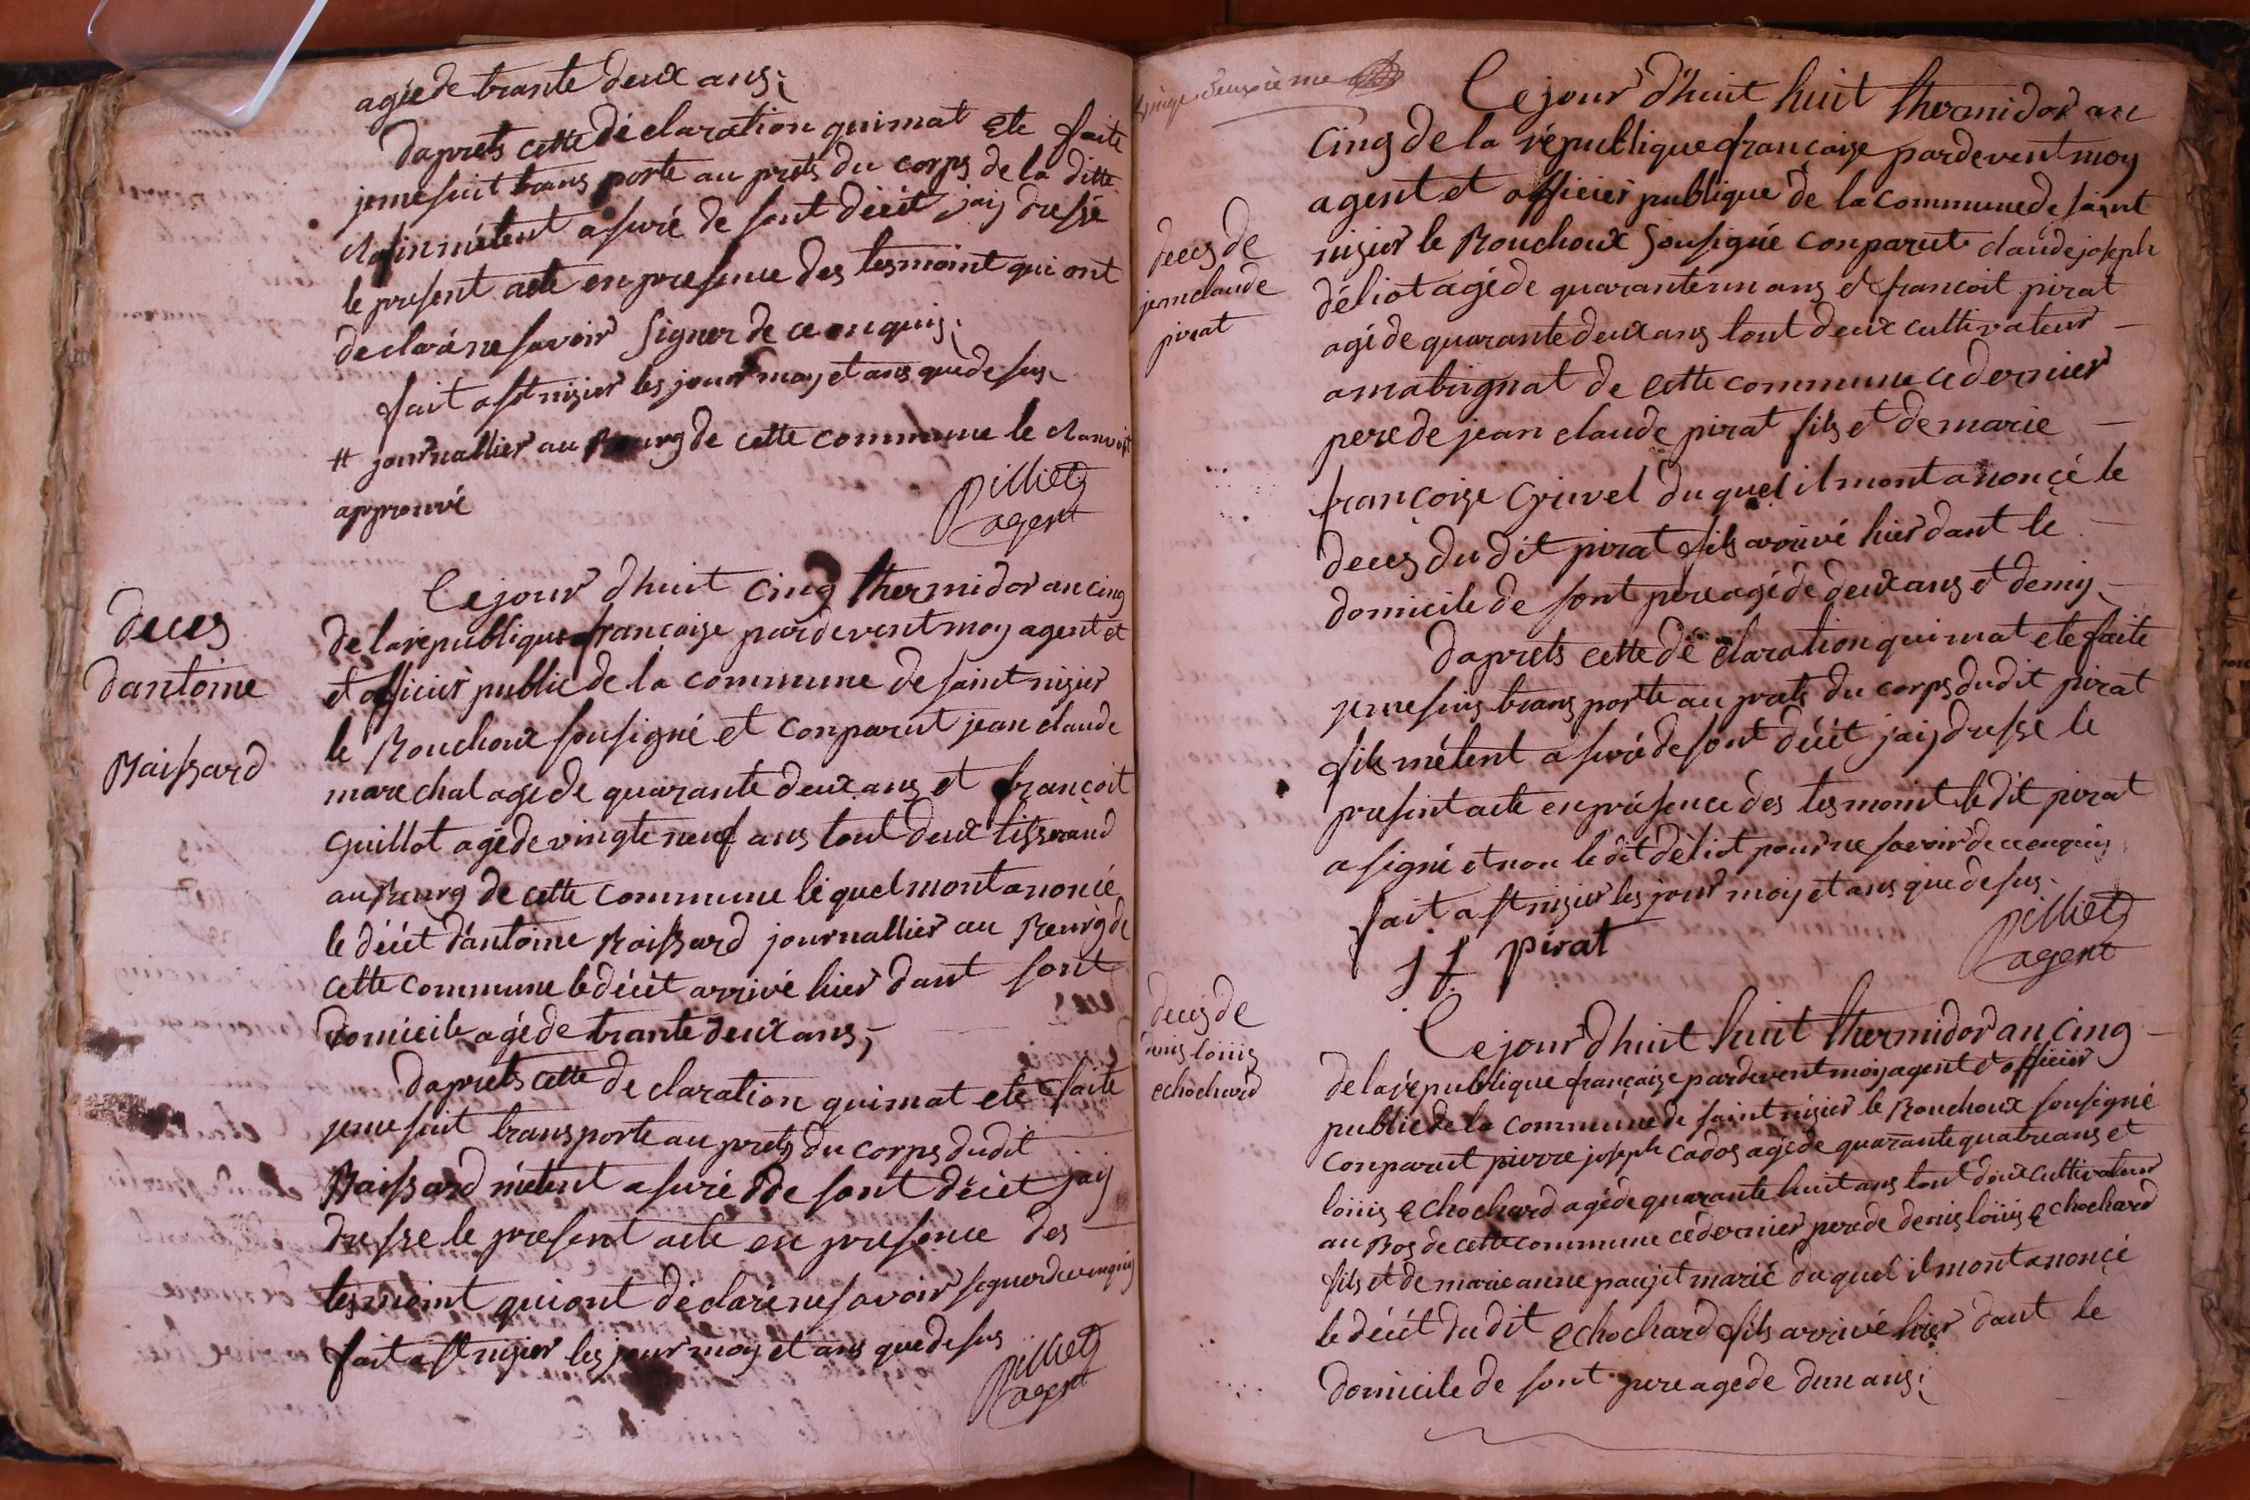 agéede trante deux ans;
daprets cette déclaration quimat ete faite
jeme suit trans porte au prets du corps de la ditte
métent asuré de sont décét jaij dressé
le present acte en presence des tesmoint qui ont
declaré ne savoir signer de ce enquis;
fait a st nizier les jour moy et ans que de sus
# journallier au Bourg de cette commune le
approuvé
Pilliet
agent
deces
dantoine
Raissard
Cejour dhuit cinq thermidor an cinq
de la republique francaise pardevent moy agent et
et officier public de la commune de saint nizier
le Bouchoux sousigné et conparut jean claude
marechal agé de quarante deux ans et françoit
Guillot agé de vingte neuf ans tout deux tisserand
au Bourg de cette commune le quel mont anoncé
le décét dantoine Raissard journallier au Bourg de
cette commune le décét arrivé hier dant sont
domicile agé de trante deux ans;
daprets cette de claration quimat eté faite
jeme suit transporte au prets du corps dudit
Raissard métent asuré de sont décét jaij
dresse le present acte en presence des
tesmoint qui ont déclaré ne savoir signer de ce enquis
fait a st nizier les jour moy et ans que de sus
Pilliet
agent
vingt deuxieme
Cejour dhuit huit thermidor an
cinq de la république francaise pardevent moy
agent et officier publique de la commune de saint
nizier le Bouchoux sousigné conparut claude joseph
déliot agé de quarante un ans et francoit pirat
agé de quarante deux ans tout deux cultivateur
a matrignat de cette commune ce dernier
pere de jean claude pirat fils et de marie
françoise Grivel du quel il mont anoncé le
deces du dit pirat fils arrivé hier dant le
domicile de sont pere agé de deux ans et demij
deces de
jean claude
pirat
daprets cette dé claration quimat ete faite
jeme suis trans porte au prets du corps dudit pirat
fils métent asuré de sont décét jaij dresse le
present acte en présence des tesmoint le dit pirat
a signé et non le dit déliot pour ne savoir de ce enquis
fait a st nizier les jour moy et ans que de sus
j f pirat
Pilliet
agent
deces de
denis loüis
echochard
Cejour dhuit huit thermidor an cinq
de la république française pardevent moy agent et officier
public de la commune de saint nizier le Bouchoux sousigné
conparut pierre joseph cados agé de quarante quatre ans et
loüis Echochard agé de quarante huit ans tout deux cultivateur
au Bos de cette commune ce dernier pere de denis loüis Echochard
fils et de marie anne marié du quel il mont anoncé
le décét du dit Echochard fils arrivé hier dant le
domicile de sont pere agé de dun ans;